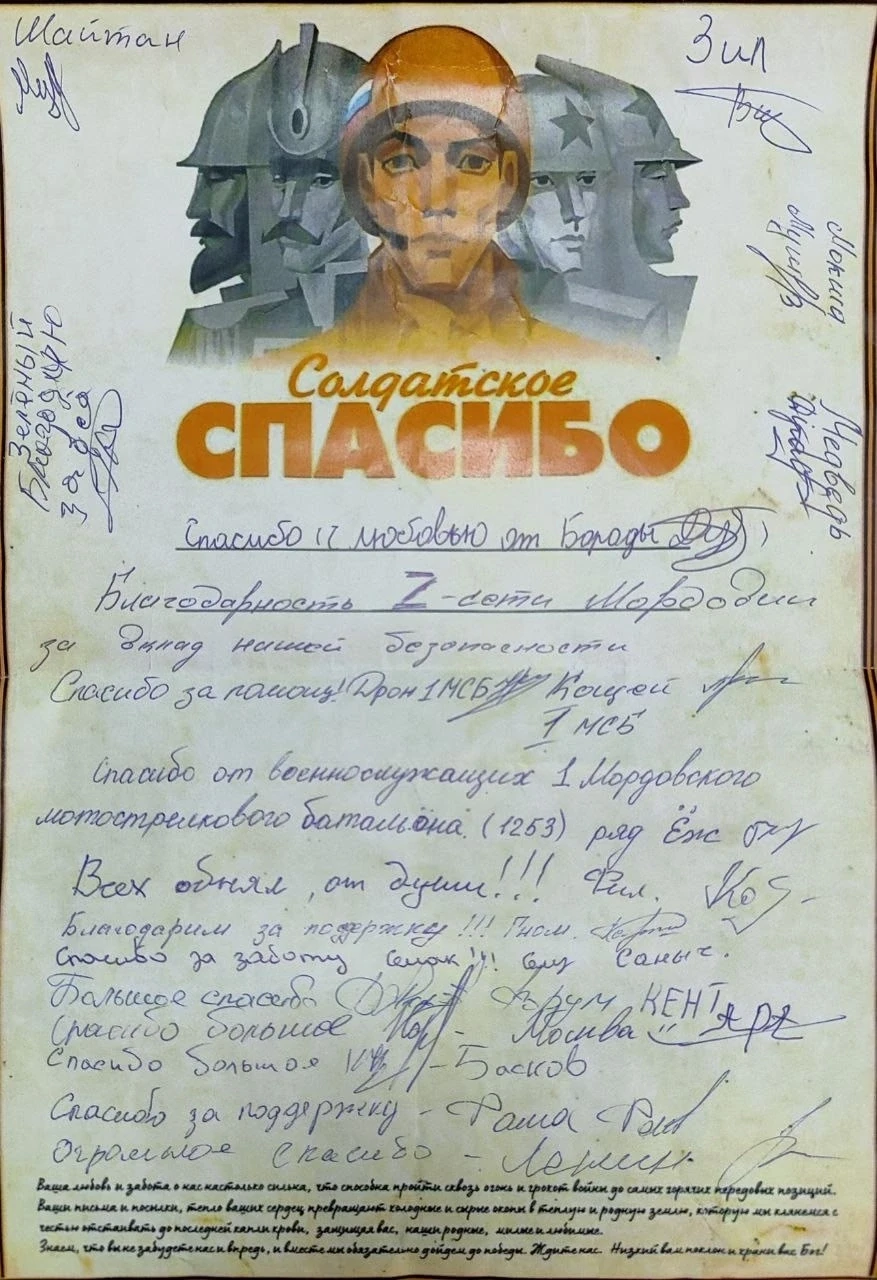 Шайтан
Зил
Мокша
Медведь
Зелёный
Благодарю
за всё
Солдатское
СПАСИБО
Спасибо с любовью от Бороды
Благодарность Z-сети Мордовии
за вклад нашей безопасности
Спасибо за помощь! Дрон 1 МСБ Кощей
1 МСБ
Спасибо от военнослужащих 1 Мордовского
мотострелкового батальона (1253) ряд Ёж
Всех обнял, от души!!! Фил.
Благодарим за поддержку!!! Гном.
Спасибо за заботу !!! Саныч.
Большое спасибо КЕНТ
Спасибо большое Москва
Спасибо большое - Басков
Спасибо за поддержку -
Огромное спасибо - Ленин.
Ваша любовь и забота о нас настолько сильна, что способна пройти сквозь огонь и грохот войны до самых горячих передовых позиций.
Ваши письма и посылки, тепло ваших сердец превращают холодные и сырые окопы в теплую и родную землю, которую мы клянемся с
честью отстаивать до последней капли крови, защищая вас, наши родные, милые и любимые.
Знаем, что вы не забудете нас и впредь, и вместе мы обязательно дойдем до победы. Ждите нас. Низкий вам поклон и храни вас Бог!